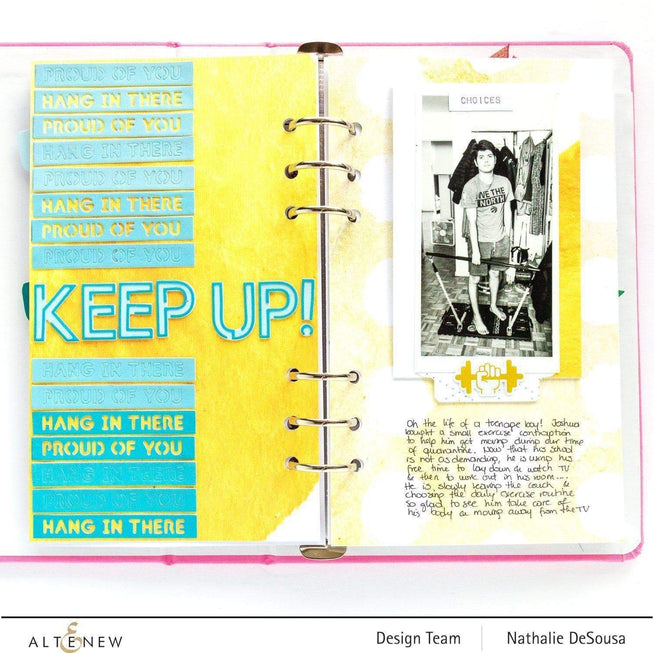 PROUD OF YOU
HANG IN THERE
PROUD OF YOU
HANG IN THERE
PROUD OF YOU
HANG IN THERE
PROUD OF YOU
PROUD OF YOU
KEEP UP!
HANG IN THERE
PROUD OF YOU
HANG IN THERE
PROUD OF YOU
HANG IN THERE
PROUD OF YOU
HANG IN THERE
CHOICES
WE THE
NORTH
Oh the life of a teenage boy! Joshua
bought a small exercise contraption
to help him get moving during our time
of quarantine. Now that his school
is not as demanding, he is using his
free time to lay down & watch TV
& then to work out in his room....
He is slowly leaving the couch &
choosing the daily exercise routine
so glad to see him take care of
his body & moving away from the TV
ALTENEW
Design Team
Nathalie DeSousa